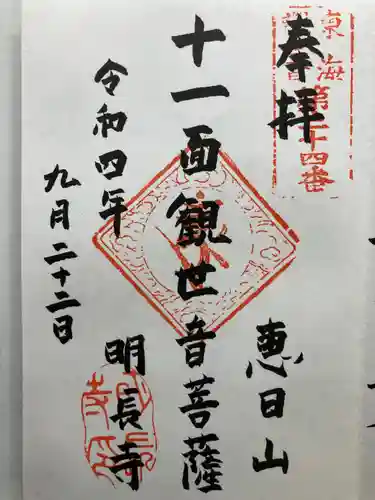 奉拝
東海
第二十四番
十一面観世音菩薩
恵日山
令和四年
九月二十二日
明長寺